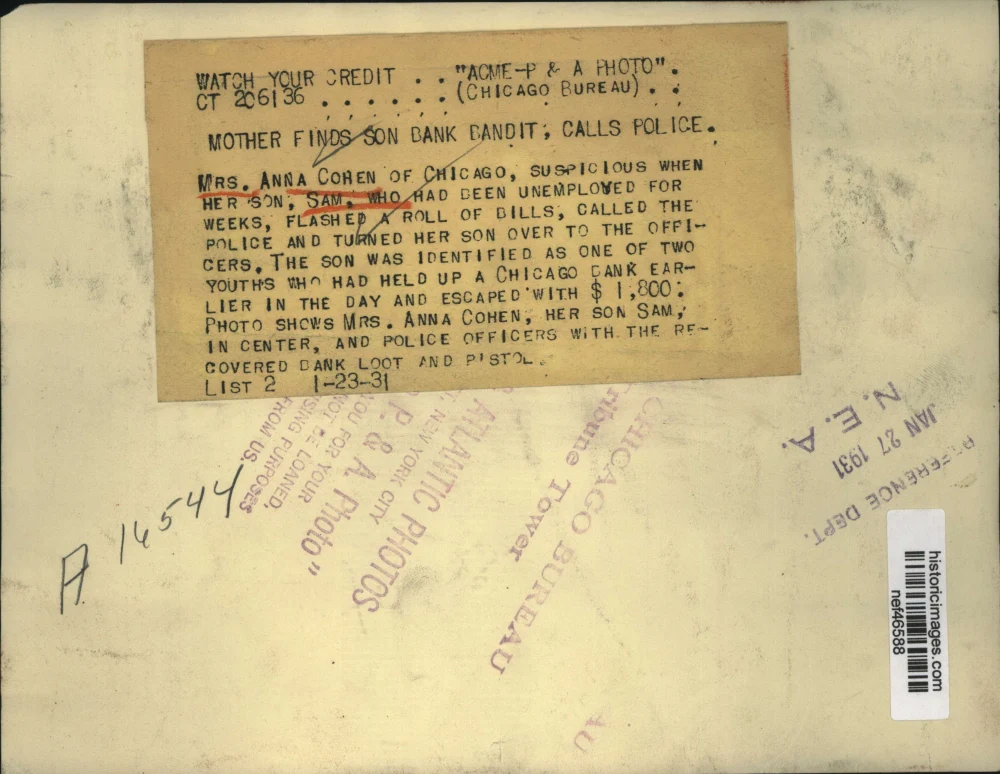 WATCH YOUR CREDIT . . "ACME-P & A PHOTO".
CT 206136 . . . . . . (CHICAGO BUREAU). .
MOTHER FINDS SON BANK BANDIT, CALLS POLICE.
MRS. ANNA COHEN OF CHICAGO, SUSPICIOUS WHEN
HER SON, SAM, WHO HAD BEEN UNEMPLOYED FOR
WEEKS, FLASHED A ROLL OF BILLS, CALLED THE
POLICE AND TURNED HER SON OVER TO THE OFFI-
CERS. THE SON WAS IDENTIFIED AS ONE OF TWO
YOUTHS WHO HAD HELD UP A CHICAGO BANK EAR-
LIER IN THE DAY AND ESCAPED WITH $ 1,800.
PHOTO SHOWS MRS. ANNA COHEN, HER SON SAM,
IN CENTER, AND POLICE OFFICERS WITH THE RE-
COVERED BANK LOOT AND PISTOL.
LIST 2 1-23-31
A 16544
FROM US.
USING PURPOSES
NOT BE LOANED
YOU FOR YOUR
P. & A. Photo"
NEW YORK CITY
ATLANTIC PHOTOS
Tribune Tower
CHICAGO BUREAU
AU
N. E. A.
JAN 27 1931
REFERENCE DEPT.
historicimages.com
nef46588